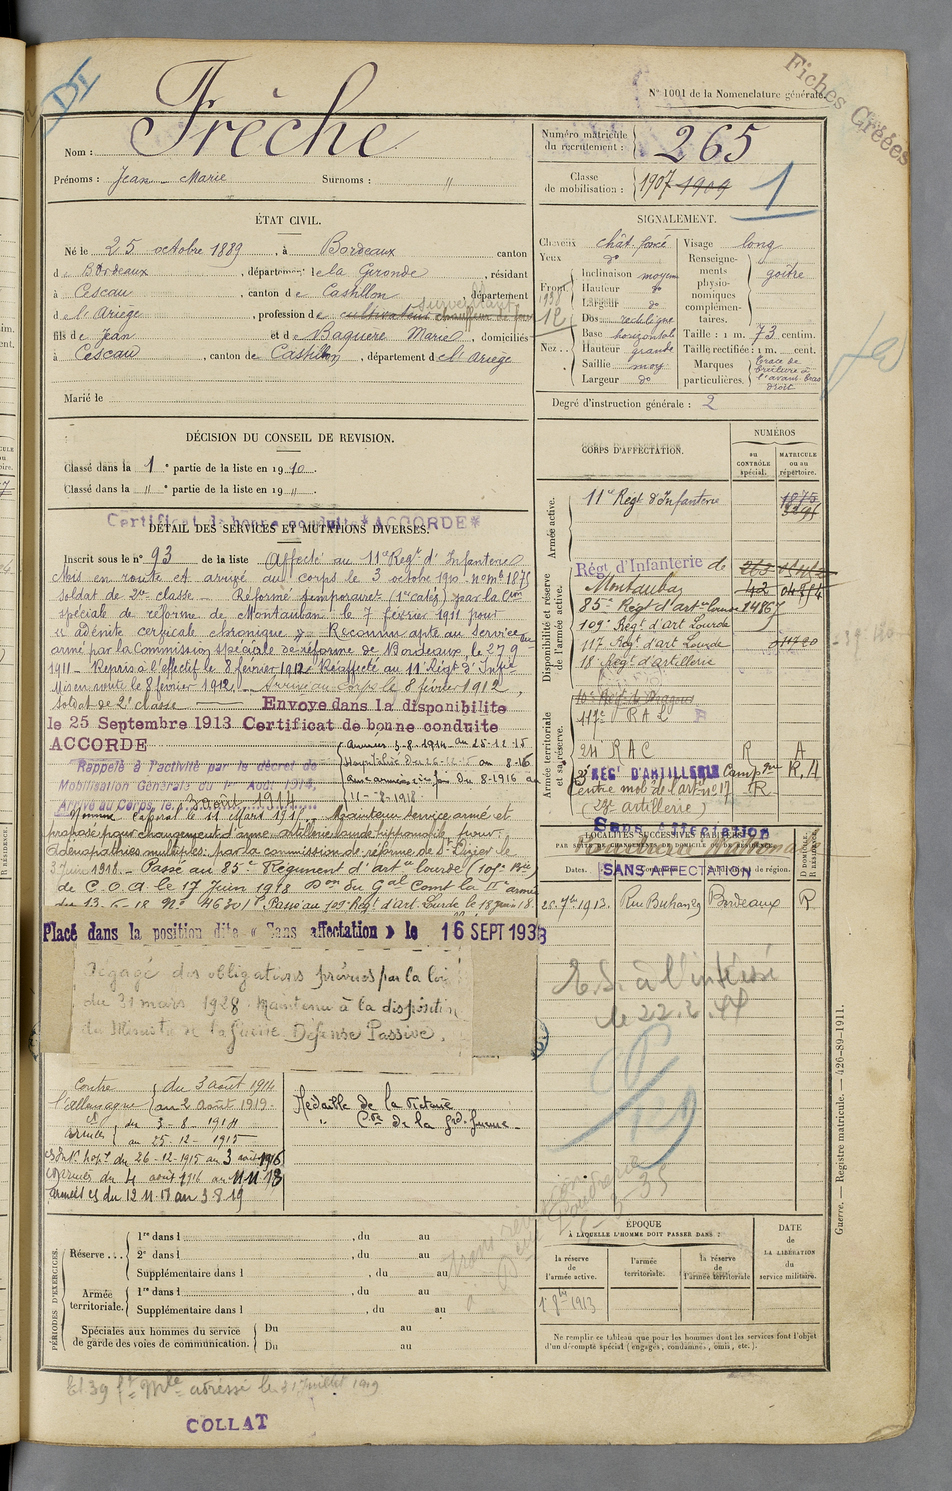 DI
Fiches Créées
N° 1001 de la Nomenclature générale.
Nom : Frèche
Prénoms : Jean-Marie Surnoms : "
Numéro matricule du recrutement : 265
Classe de mobilisation : 1907 1909
1
ÉTAT CIVIL.
Né le 25 octobre 1889, à Bordeaux canton
de Bordeaux, département de la Gironde, résidant
à Cescau, canton de Castillon, département
surveillant
de l'Ariège, profession de cultivateur chauffeur de four
fils de Jean et de Baquere Marie, domiciliés
à Cescau, canton de Castillon, département de l'Ariège
Marié le
SIGNALEMENT.
Cheveux chât. foncé
Yeux do
Front Inclinaison moyen
Hauteur do
Largeur do
Nez Dos rectiligne
Base horizontale
Hauteur grande
Saillie moy
Largeur do
Visage long
Renseignements physionomiques complémentaires. goître
Taille : 1 m. 73 centim.
Taille rectifiée : 1 m. cent.
Marques particulières. trace de brûlure à l'avant-bras droit
Degré d'instruction générale : 2
DÉCISION DU CONSEIL DE REVISION.
Classé dans la 1e partie de la liste en 1910.
Classé dans la " e partie de la liste en 19 ".
Certificat de bonne conduite *ACCORDE*
DÉTAIL DES SERVICES ET MUTATIONS DIVERSES.
Inscrit sous le n° 93 de la liste Affecté au 11e Regt d'Infanterie
Mis en route et arrivé au corps le 3 octobre 1910. no mle 1875
Soldat de 2me classe. Réformé temporaire (1re catég) par la Con
spéciale de réforme de Montauban le 7 février 1911 pour
"adénite cervicale chronique". Reconnu apte au Service
armé par la Commission spéciale de réforme de Bordeaux, le 27 9
1911 - Repris à l'effectif le 8 février 1912. Réaffecté au 11e Régt d'Infie
Mis en route le 8 février 1912. Arrivé au Corps le 8 février 1912,
Soldat de 2e classe Envoye dans la disponibilite
le 25 Septembre 1913 Certificat de bonne conduite
ACCORDE
Rappelé à l'activité par le décret de
Mobilisation Générale du 1er Août 1914,
Arrivé au Corps le 3 août 1914
Armées 3-8-1914 au 25-12-15
Hospitalisé du 26-12-15 au 8-16
Aux armées du 8-1916 au
11-8-1918
Nommé Caporal le 11 Mars 1917. Maintenu service armé et
proposé pour changement d'arme artillerie lourde hippomobile pour:
Adénopathies multiples: par la commission de réforme de St Dizier le
3 juin 1918. Passé au 85e Régiment d'artie lourde (107e Bie)
de C.O.A le 17 Juin 1918 Don du Gal Comt la IIe armée
du 13-6-18 No 46301 Passé au 109 Régt d'art. Lourde le 18 juin 18
Placé dans la position dite « Sans affectation » le 16 SEPT 1933
Dégagé des obligations prévues par la loi
du 31 mars 1928. Maintenu à la disposition
du Ministre de la Guerre. Défense Passive.
Contre l'Allemagne du 3 août 1914
au 2 août 1919
armées du 3-8-1914
au 25-12-1915
Hopl du 26-12-1915 au 3 août 1916
armées du 4 août 1916 au 11 11 18
armées du 12 11 18 au 3 8 19
Médaille de la Victoire
" Cve de la gde Guerre
CORPS D'AFFECTATION.
NUMÉROS
au CONTRÔLE spécial.
MATRICULE ou au répertoire.
Armée active.
11e Regt d'Infanterie 1875
Disponibilité et réserve de l'armée active.
Régt d'Infanterie de Montauban
85e Régt d'art. lourde 14867
109e Régt d'art Lourde
117 Régt d'art Lourde
18e Régt d'artillerie
Armée territoriale et sa réserve.
117e RAL
21e RAC R A
REGt D'ARTILLERIE Camp gne R A
Centre mob de l'art n° 17 R
artillerie)
Sans Affectation
LOCALITÉS SUCCESSIVES HABITÉES
PAR SUITE DE CHANGEMENTS DE DOMICILE OU DE RÉSIDENCE.
SANS AFFECTATION
Dates.
D DOMICILE R RÉSIDENCE.
25 7bre 1913. Rue Buhan 29 Bordeaux R
E.S. à l'intéressé
le 22.2.44
PÉRIODES D'EXERCICES.
Réserve ... 1re dans l , du au
2e dans l , du au
Supplémentaire dans l , du au
Armée territoriale. 1re dans l , du au
Supplémentaire dans l , du au
Spéciales aux hommes du service de garde des voies de communication. Du au
Du au
ÉPOQUE
À LAQUELLE L'HOMME DOIT PASSER DANS :
la réserve de l'armée active.
l'armée territoriale.
la réserve de l'armée territoriale
DATE DE LA LIBÉRATION du service militaire.
1er 8bre 1913
Ne remplir ce tableau que pour les hommes dont les services font l'objet
d'un décompte spécial (engagés, condamnés, omis, etc.).
Guerre. — Registre matricule. — 426-89-1911.
Et 39 adressé le 31 Juillet 1919
COLLAT